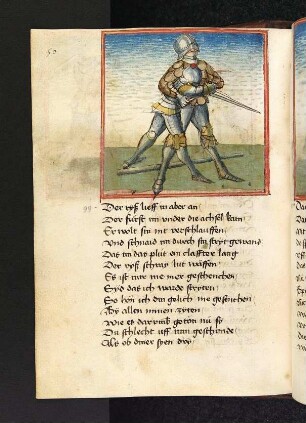 50
Der ryß lieff in aber an
Der fürst im under die achsel kam
Er wolt sin nit verschlauffen
Und schnaid im durch sin strytgewand
Das im das plut ein claffter lang
Der ryß schray lut wäffen
Es ist nie me mer geschenchen
Syd das ich ward stryten
So hon ich din gelich me gesechen
By allen minen zyten
Wie es darumb geton nü sy
Du schlecht uff man geschinde
Als ob diner syen dry